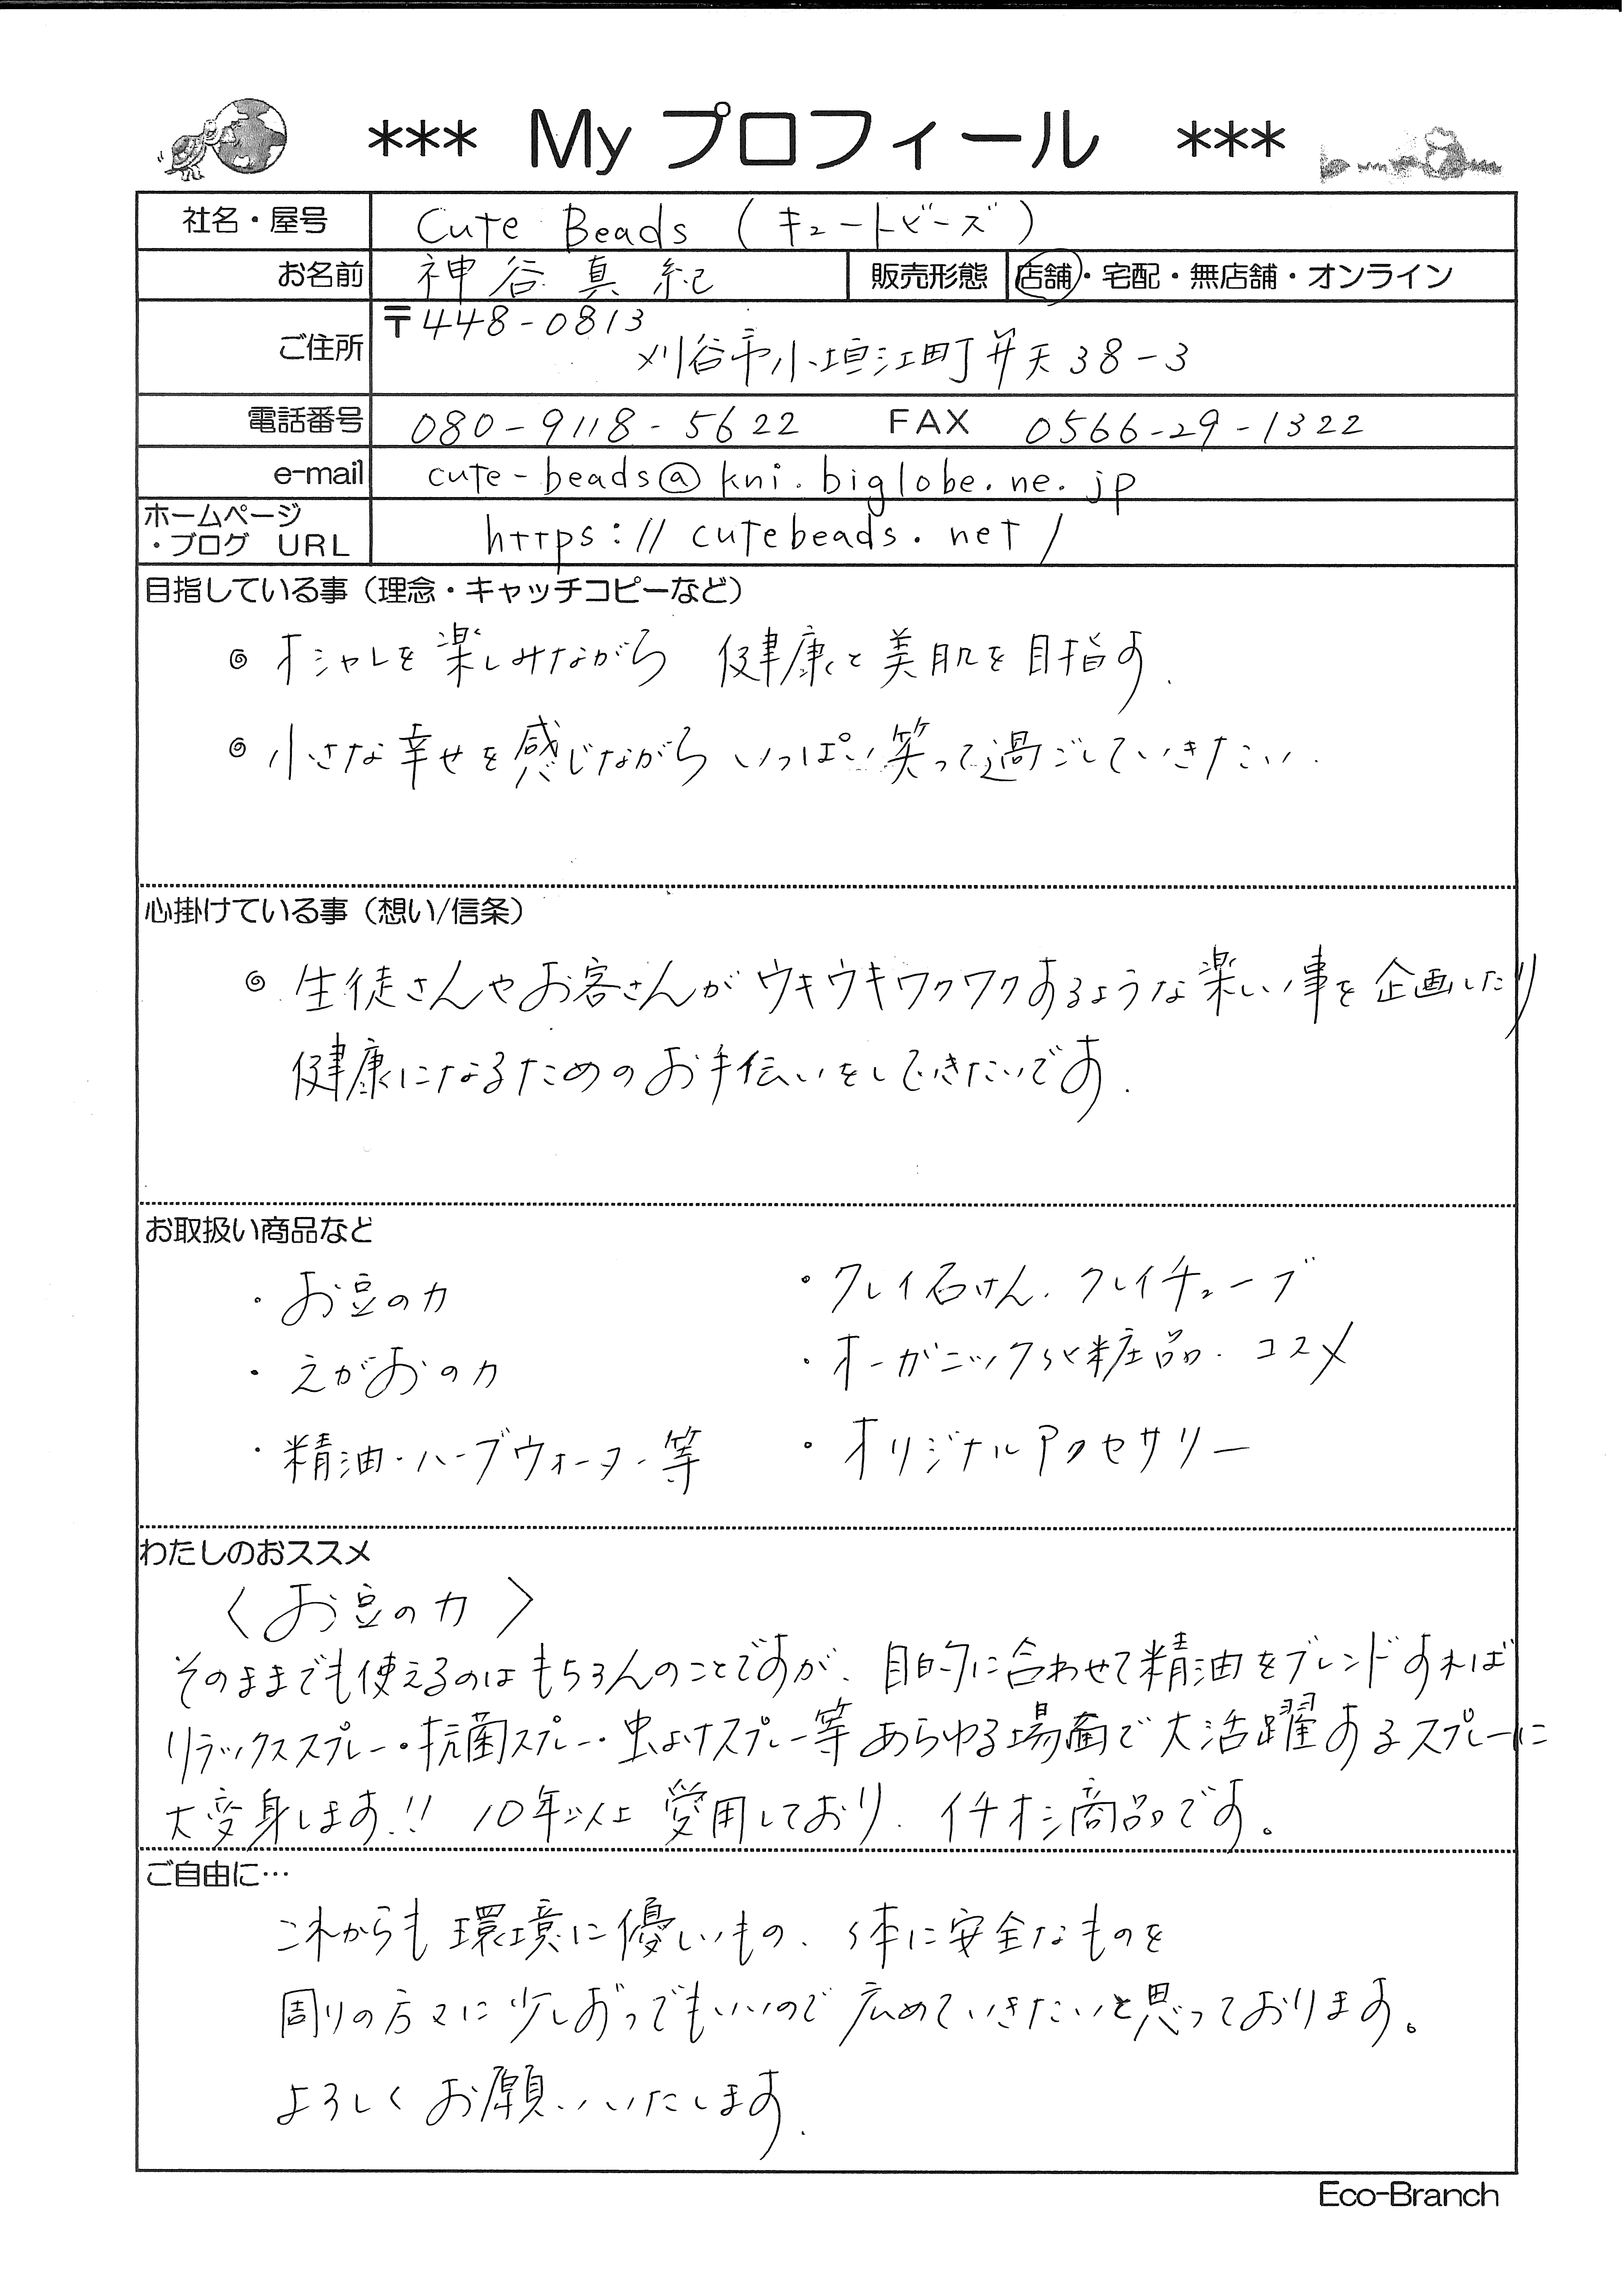 *** My プロフィール ***
社名・屋号 Cute Beads (キュートビーズ)
お名前 神谷真紀 販売形態 店舗・宅配・無店舗・オンライン
ご住所 〒448-0813
刈谷市小垣江町弁天38-3
電話番号 080-9118-5622 FAX 0566-29-1322
e-mail cute-beads@kni.biglobe.ne.jp
ホームページ
・ブログ URL https://cutebeads.net/
目指している事(理念・キャッチコピーなど)
◎ オシャレを楽しみながら 健康と美肌を目指す.
◎ 小さな幸せを感じながら いっぱい笑って過ごしていきたい.
心掛けている事(想い/信条)
◎ 生徒さんやお客さんが ウキウキワクワクするような楽しい事を企画したり
健康になるためのお手伝いをしていきたいです.
お取扱い商品など
・お豆の力
・クレイ石けん、クレイチューブ
・えがおの力
・オーガニック化粧品・コスメ
・精油・ハーブウォーター等
・オリジナルアクセサリー
わたしのおススメ
〈お豆の力〉
そのままでも使えるのはもちろんのことですが、目的に合わせて精油をブレンドすれば
リラックススプレー・抗菌スプレー・虫よけスプレー等 あらゆる場面で大活躍するスプレーに
大変身します!! 10年以上 愛用しており、イチオシ商品です。
ご自由に…
これからも環境に優しいもの、体に安全なものを
周りの方々に少しずつでもいいので広めていきたいと思っております。
よろしくお願いいたします.
Eco-Branch